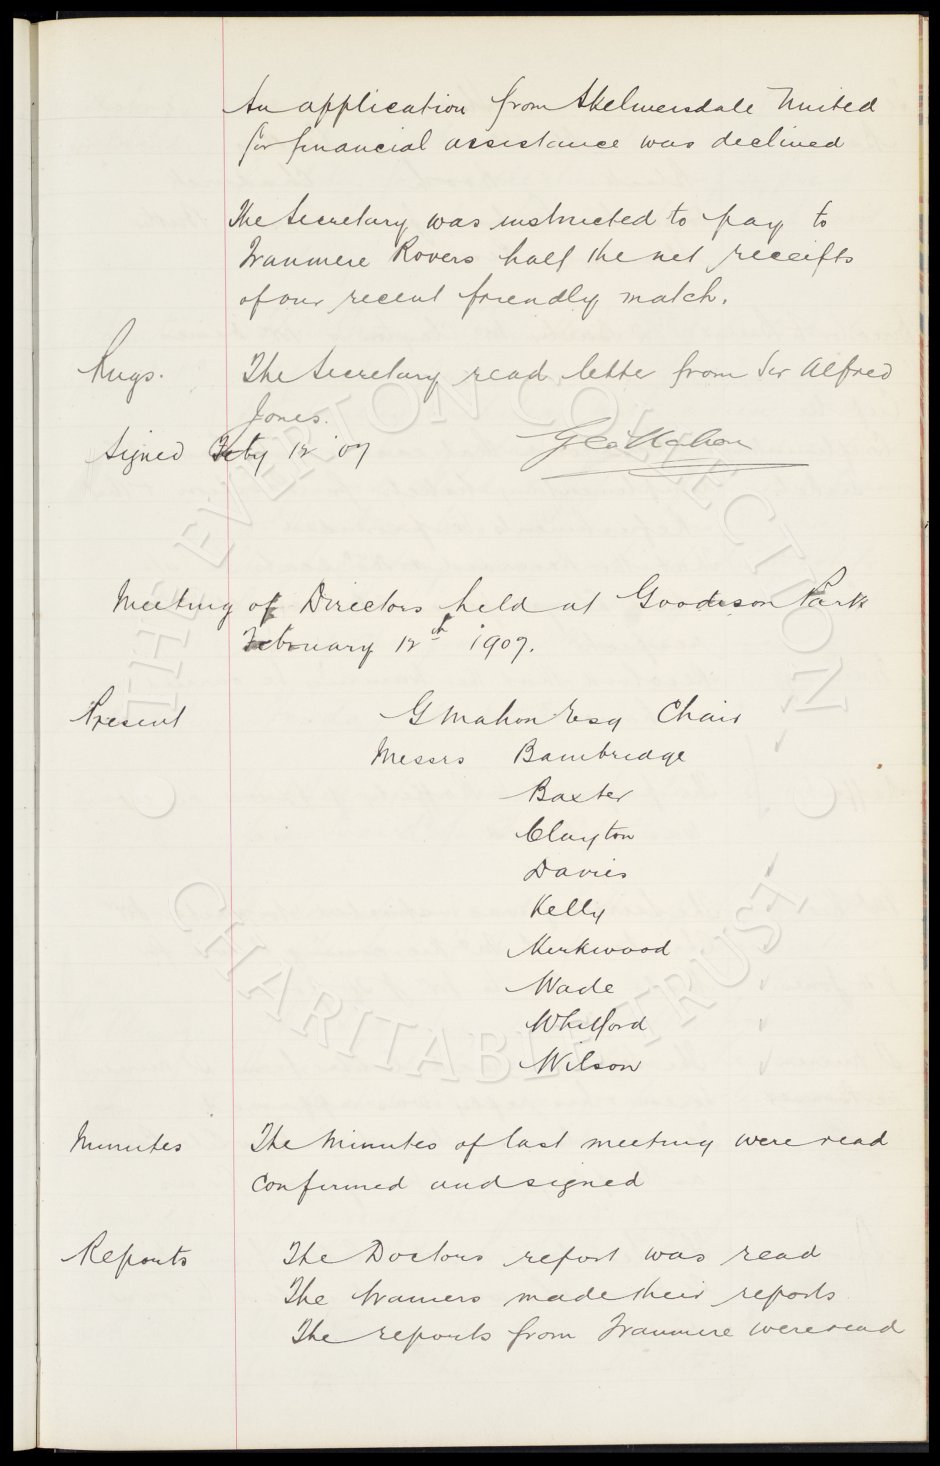 An application from Skelmersdale United
for financial assistance was declined
The Secretary was instructed to pay to
Tranmere Rovers half the net receipts
of our recent friendly match.
Rugs. The Secretary read letter from Sir Alfred
Jones.
Signed Feby 12 '07 Geo Mahon
Meeting of Directors held at Goodison Park
February 12th 1907.
Present G Mahon Esq Chair
Messrs Bainbridge
Baxter
Clayton
Davies
Kelly
Kirkwood
Wade
Whitford
Wilson
Minutes The Minutes of last meeting were read
confirmed and signed
Reports The Doctors report was read
The trainers made their reports
The reports from Tranmere were read
© THE EVERTON COLLECTION
CHARITABLE TRUST